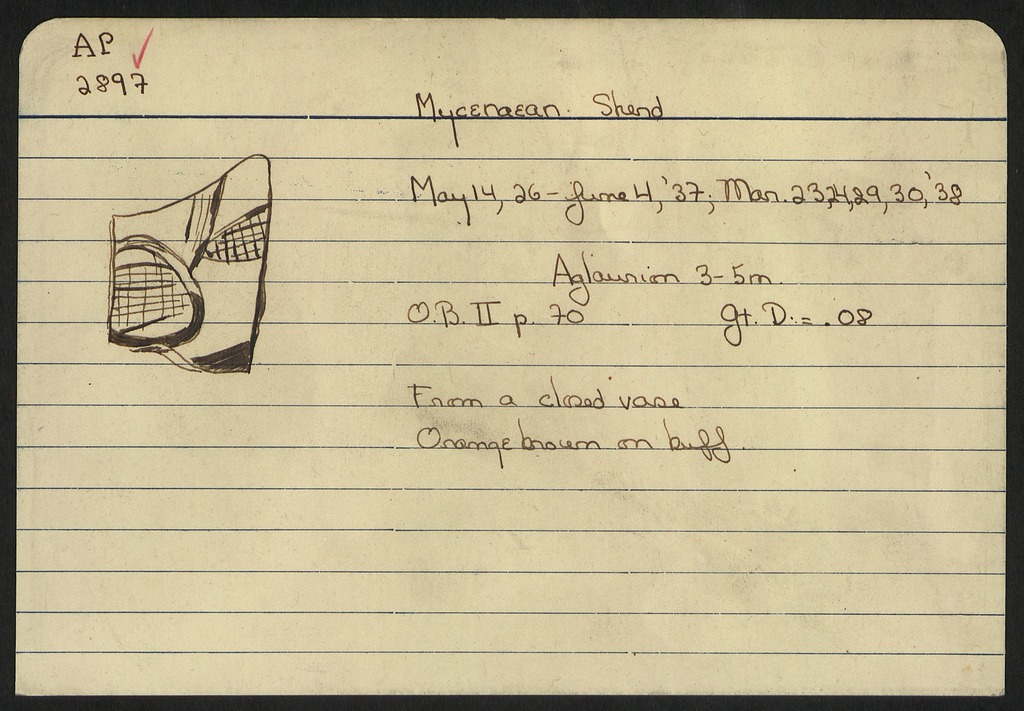 AP
2897
Mycenaean. Sherd
May 14, 26 - June 4, '37; Mar. 23,24,29, 30, '38
Aglaurion 3-5m.
O.B. II p. 70 Gt. D. = .08
From a closed vase
Orange brown on buff.